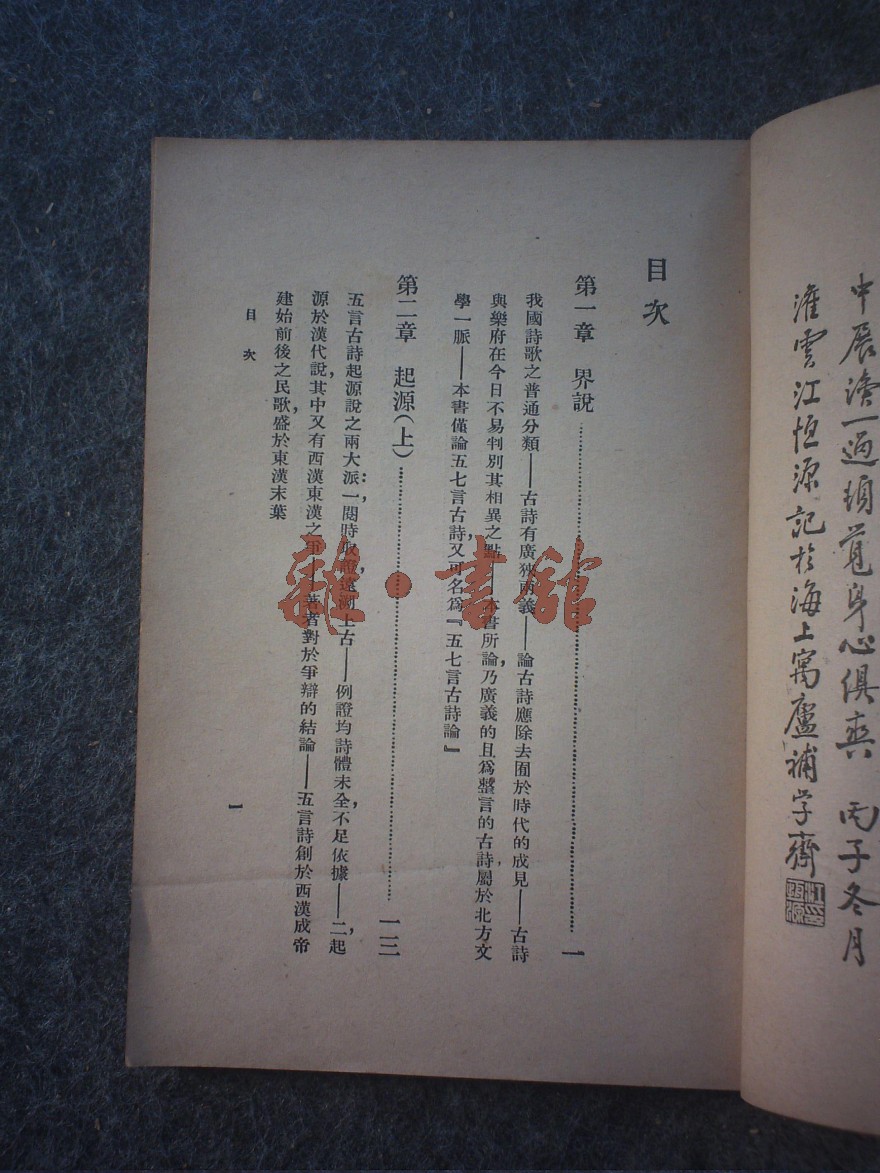 中展讀一過頊覓身心俱爽　丙子冬月
淮雲江恒源記於海上寓廬補学齋
目次
第一章　界說……一
我國詩歌之普通分類——古詩有廣狹兩義——論古詩應除去囿於時代的成見——古詩
與樂府在今日不易判別其相異之點——本書所論，乃廣義的且爲整言的古詩屬於北方文
學一脈——本書僅論五七言古詩，又可名爲『五七言古詩論』
第二章　起源（上）……一三
五言古詩起源說之兩大派：一，閱時取證遠溯上古——例證均詩體未全，不足依據——二，起
源於漢代說，其中又有西漢東漢之爭——著者對於爭辯的結論——五言詩創於西漢成帝
建始前後之民歌，盛於東漢末葉
目次
一
雜·書館